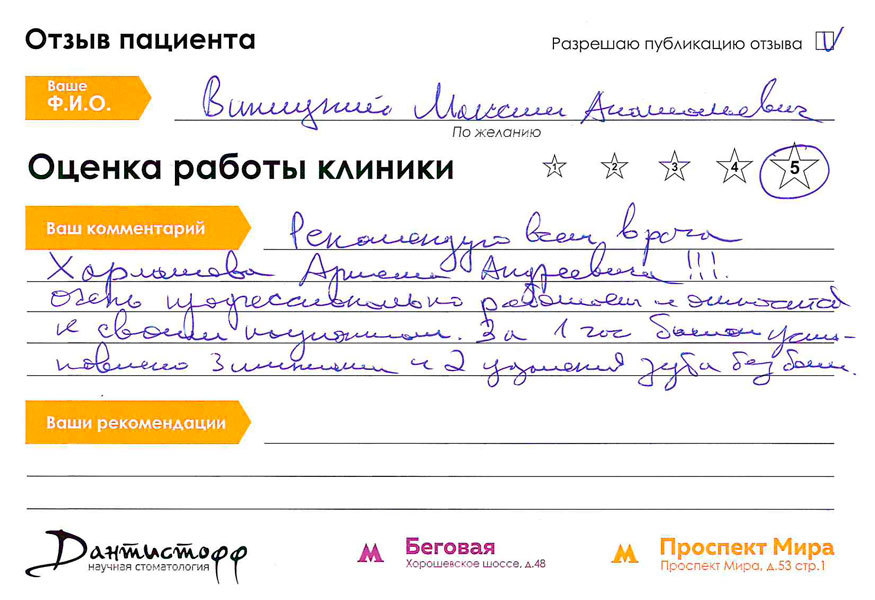 Отзыв пациента
Разрешаю публикацию отзыва
Ваше
Ф.И.О.
Виницкий Максим Анатольевич
По желанию
Оценка работы клиники
1 2 3 4 5
Ваш комментарий
Рекомендую всем врача
Артема Андреевича!!!
Очень профессионально работает и относится
к своим пациентам. За 1 час были уста-
новлено 3 импланта и 2 удаления зуба без боли.
Ваши рекомендации
Дантистофф
научная стоматология
Беговая
Хорошевское шоссе, д.48
Проспект Мира
Проспект Мира, д.53 стр.1